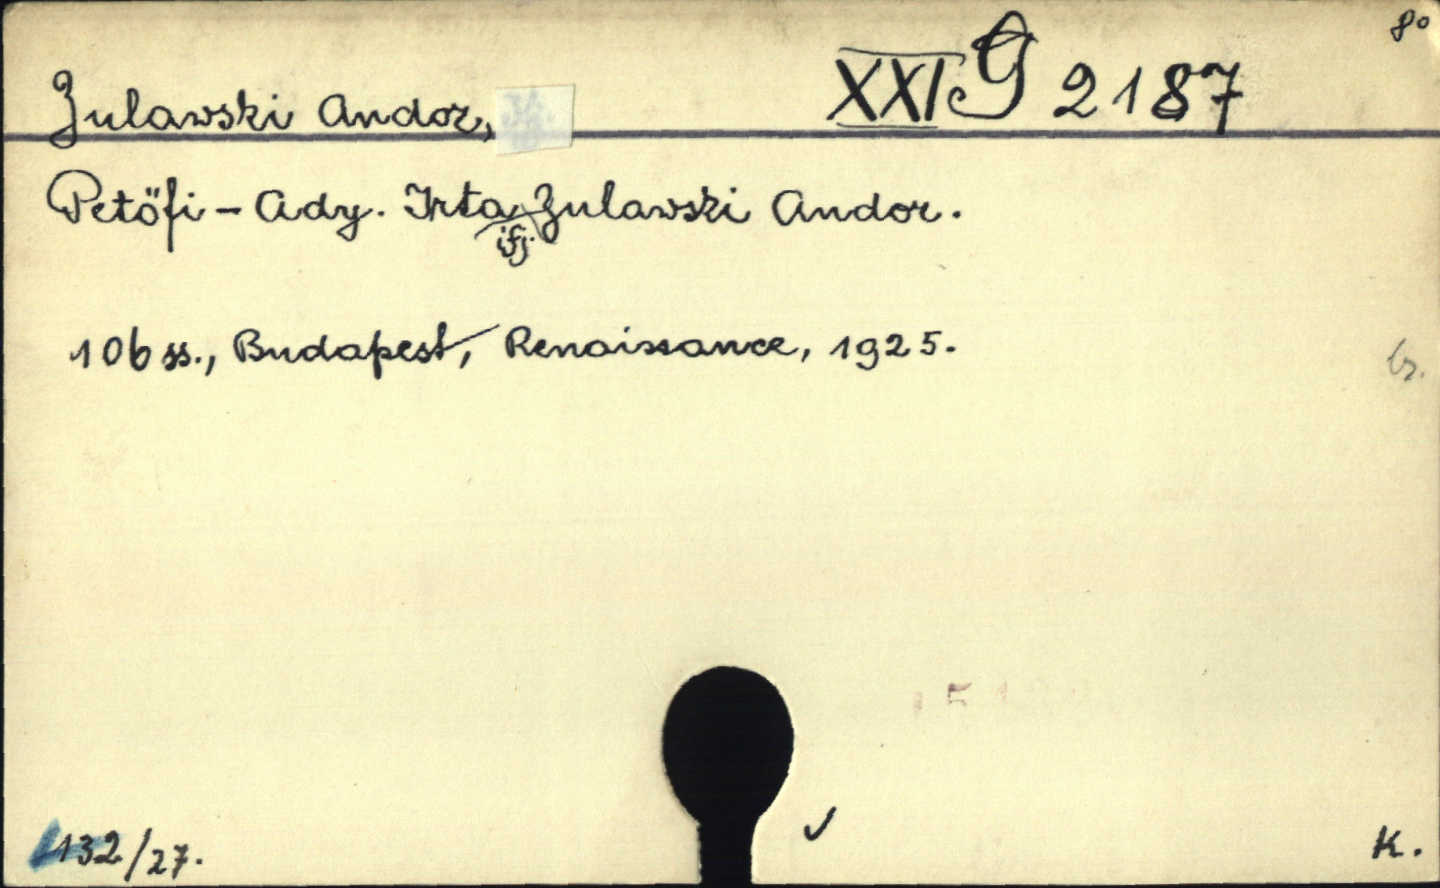 8°
Zulawski Andor, XXI G 2187
Petőfi - Ady. Irta Zulawski Andor.
ifj.
106 ss., Budapest, Renaissance, 1925.
132/27.
K.